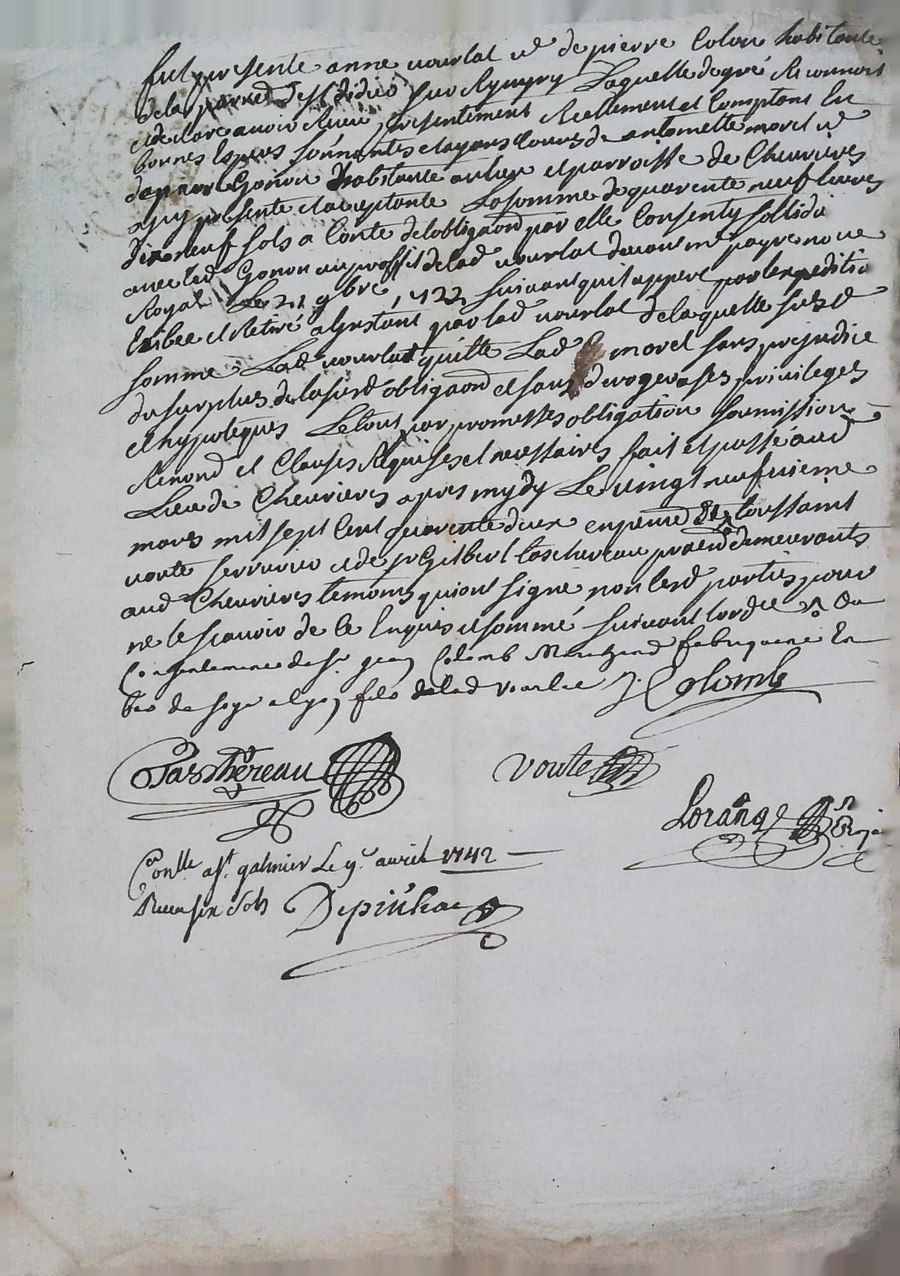 fut presente anne vourlat ve de pierre Colon habitante
de la parroisse de St didier sur Rignyry Laquelle de gré Reconnois
et declare avoir Receu presentement Reellement et Comptant En
bonnes Especes sonnantes et ayans Cours de antoinette morel ve
Gonon habitante au lieu et parroisse de Chevrieres
a presente et acceptante La somme de quarente neuf livres
dix neuf sols a Conte de lobligaon par elle Consenty sollidt
avec led Gonon au proffit de lad vourlat devant me payre no re
Royal Le 21 9bre 1722 suivant quil appert par lexpedition
Exibee et Retiré a lJnstant par lad vourlat de laquelle susd
somme Lad vourlat quitte Lad morel sans prejudice
du surplus de lasusd obligaon et sans deroger a ses privileges
et hypoteques Le tout par promesses obligation soumission
Renond et Clauses Requises et necessaires fait et passé aud
Lieu de Chevrieres apres mydy Le vingt neufvieme
mars mil sept Cent quarente deux en presence de Sr toussaint
voute serrurier et de sr Gilbert tascherau praen demeurants
aud Chevrieres temoins qui ont signé non lesd parties pour
ne le scavoir de ce Enquis et sommé suivant lordce Du
Consentement de Sr jean Colomb Marchand fabriquand En
bas de soye a lyon fils de lad vourlat J. Colomb
Taschereau voute
Lorange nre Royal
Conlle a St galmier Le 9e avril 1742
Receu six sols Depinhac